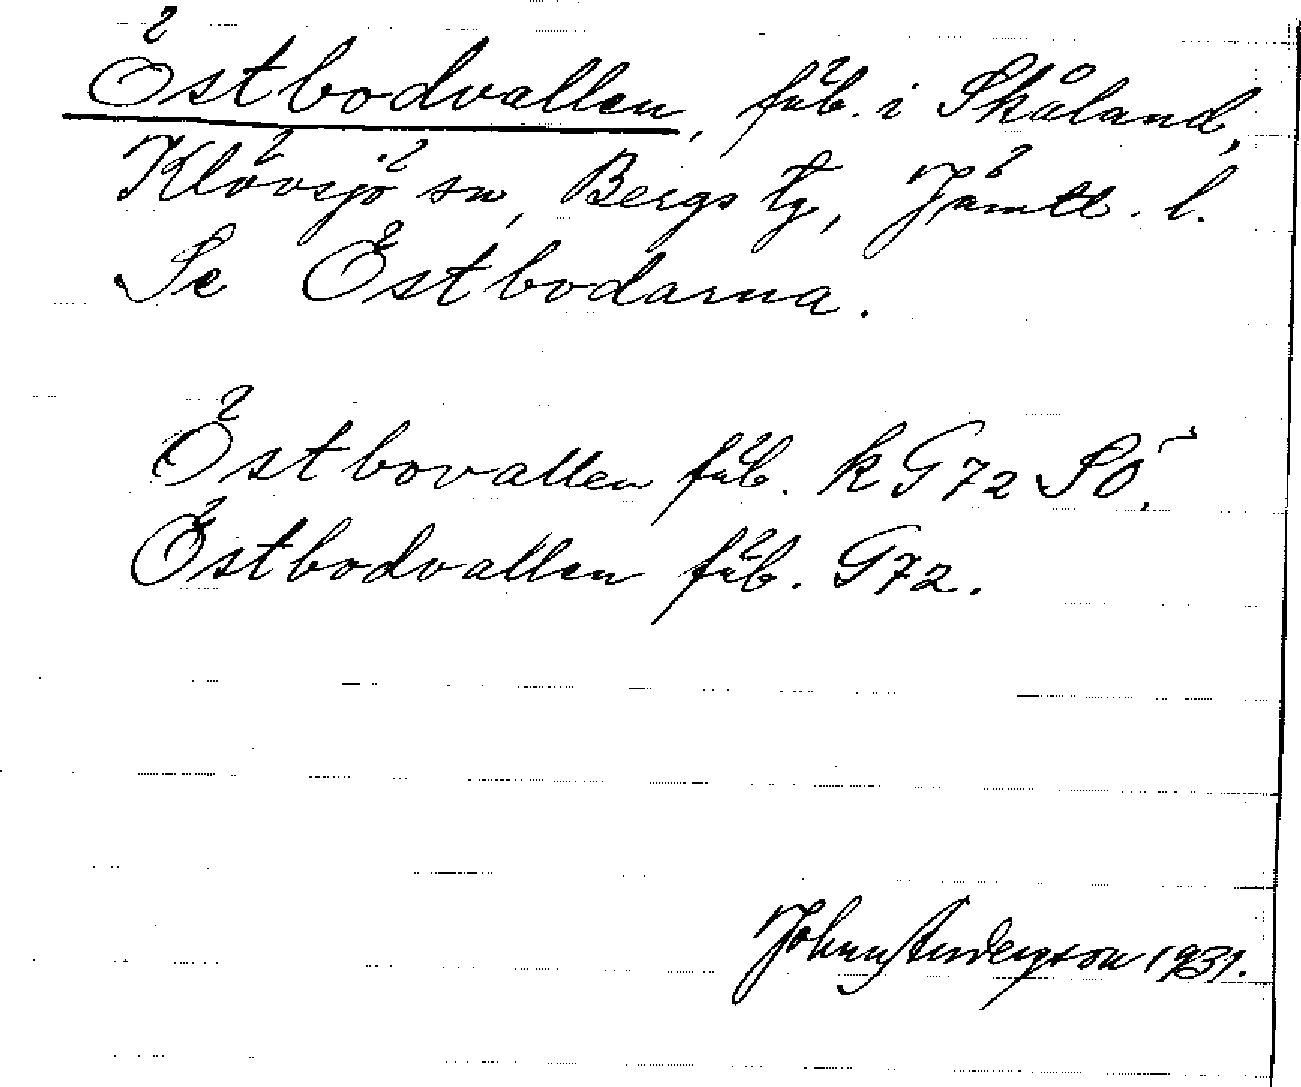 Östbodvallen, fäb. i Skåland,
Klövsjö sn, Bergs tg, Jämtl. l.
Se Östbodarna.
Östbovallen fäb. k G72 SÖ.
Östbodvallen fäb. G72.
Johnny Anderzson 1931.